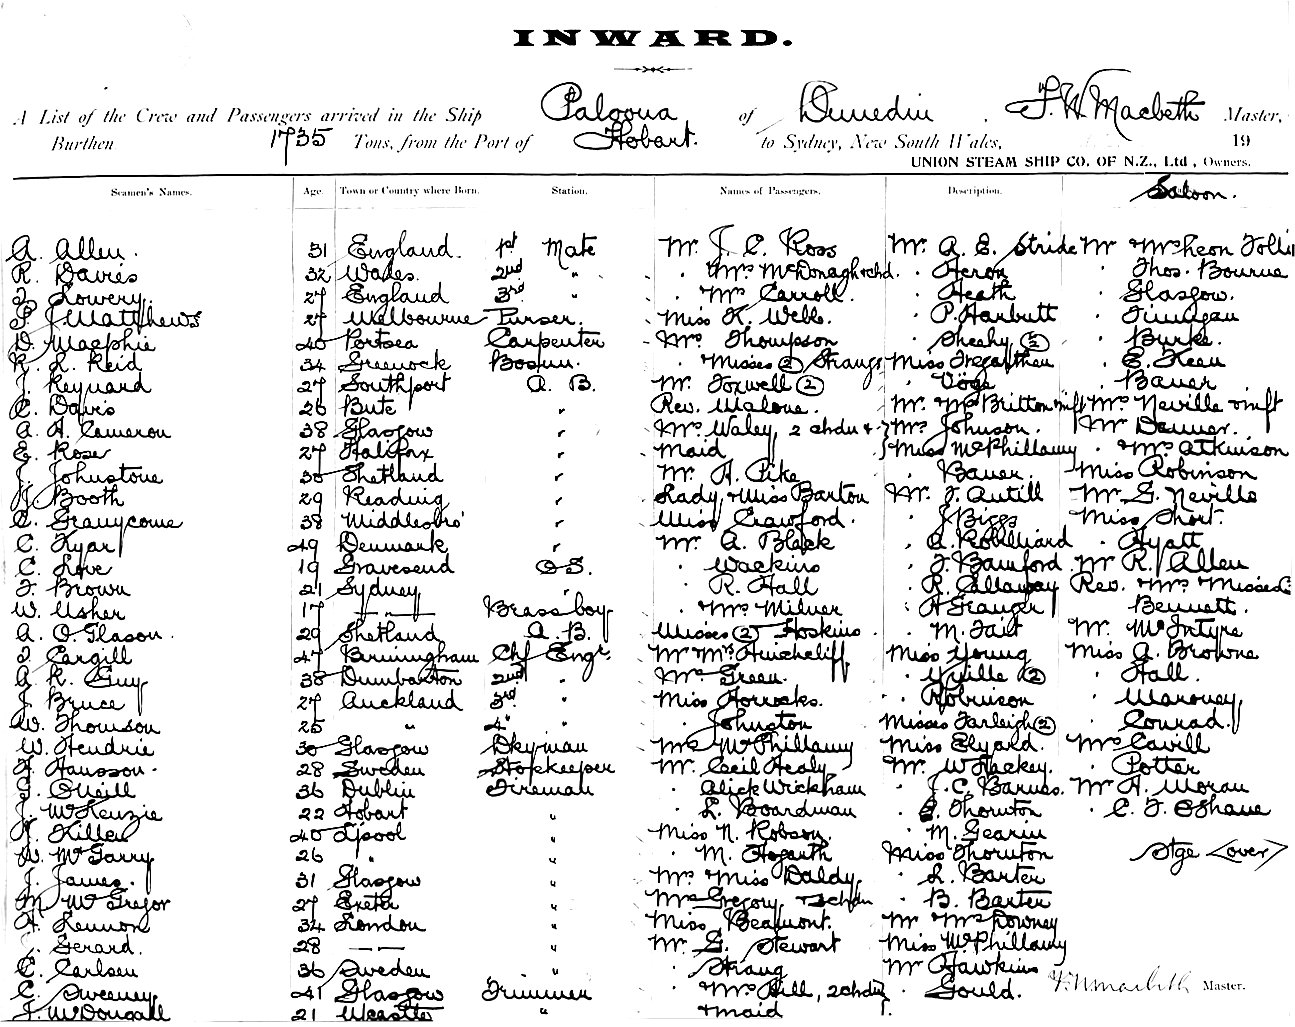 INWARD.
A List of the Crew and Passengers arrived in the Ship Palooua of Dunedin . F. W. Macbeth Master,
Burthen 1735 Tons, from the Port of Hobart. to Sydney, New South Wales, 19
UNION STEAM SHIP CO. OF N.Z., Ltd , Owners.
Seamen's Names. Age. Town or Country where Born. Station. Names of Passengers. Description. Saloon.
A. Allen. 31 England. 1st Mate Mr. J. C. Ross Mr. A. E. Stride Mr McKeon
R. Davis 32 Wales. 2nd " " Mrs McDonagh & chd. " Heron " Thos. Bourne
J. Lowery. 27 England 3rd " " Mrs Carroll. " Heath " Glasgow.
P. J. Matthews 27 Melbourne Purser. Miss K. Webb. " P. Harbutt " Finnigan
D. Macphie 40 Portsea Carpenter Mrs Thompson " Sheehy (2) " Burke.
R. L. Reid 34 Greenock Bosun. " Misses (2) Strang Miss Tregarthen " E. Keen
J. Reynard 27 Southport A. B. Mr. Foxwell (2) " Vöge " Bauer
C. Davis 26 Bute " Rev. Malone. Mr. McBritton Mrs. Neville & inft
A. H. Cameron 38 Glasgow " Mrs Waley, 2 chdn & Mrs Johnson. Mr Denner.
E. Rose 27 Halifax " maid Miss McPhillamy " Mrs Atkinson
J. Johnstone 30 Shetland " Mr. H. Pike " Bauer. Miss Robinson
J. Booth 29 Reading " Lady, Miss Barton Mr. J. Autill Mr. G. Neville
38 Middlesbro' " Miss Crawford. " J. Biggs Miss Short.
C. Kyar 49 Denmark " Mr. A. Black " A. Robilliard " Hyatt
C. Love 19 Gravesend O.S. " Watkins " J. Bamford Mr R. Allen
J. Brown 21 Sydney " R. Hall " R. Callaway Rev. Mrs Misses
W. Usher 17 — " — Brassboy " Mrs Milner " H Granger " Bennett.
A. O Glason. 29 Shetland A. B. Misses (2) Hoskins " M. Tait Mr. McIntyre
J. Cargill 47 Birmingham Chf Engr. Mr Mrs Hinchcliff Miss Young Miss A. Browne
A. R. Guy 38 Dumbarton 2nd " Mrs Green. " (2) " Hall.
J. Bruce 27 Auckland 3rd " Miss Horrocks. " Robinson " Maroney,
W. Thomson 25 " 4th " " Johnston Misses Farleigh (2) " Conrad.
W. Hendrie 30 Glasgow Dkyman Mrs McPhillamy Miss Elyard. Mrs Cavill
J. Hansson. 28 Sweden Stokeeper Mr. Cecil Healy Mr. W Hackey. " Potter
G. O'Neill 36 Dublin Fireman " Alick Wickham " J. C. Mr H. Moran
J. McKenzie 22 Hobart " " L. Boardman " Thornton " C. J. O'Shane
H. Killen 40 L'pool " Miss N. Robson. " M. Gearin
W. McGarry 26 " " " M. Hogarth Miss Thornton Stge (over)
J. James. 31 Glasgow " Mrs Miss Daldy, " L. Barter
M McGregor 27 Exeter " Mrs Gregory, chdn " B. Barter
H. Lennon 34 London " Miss Beaumont. Mr Mrs Downey
J. Gerard. 28 — " — " Mr. G. Stewart Miss McPhillamy
E. Carlsen 36 Sweden " " Strang Mr Hawkins F W Macbeth Master.
C. Sweeney 41 Glasgow Trimmer " Mrs Hill, 2 chdn, " Gould.
J. McDougall 21 Ncastle " " maid